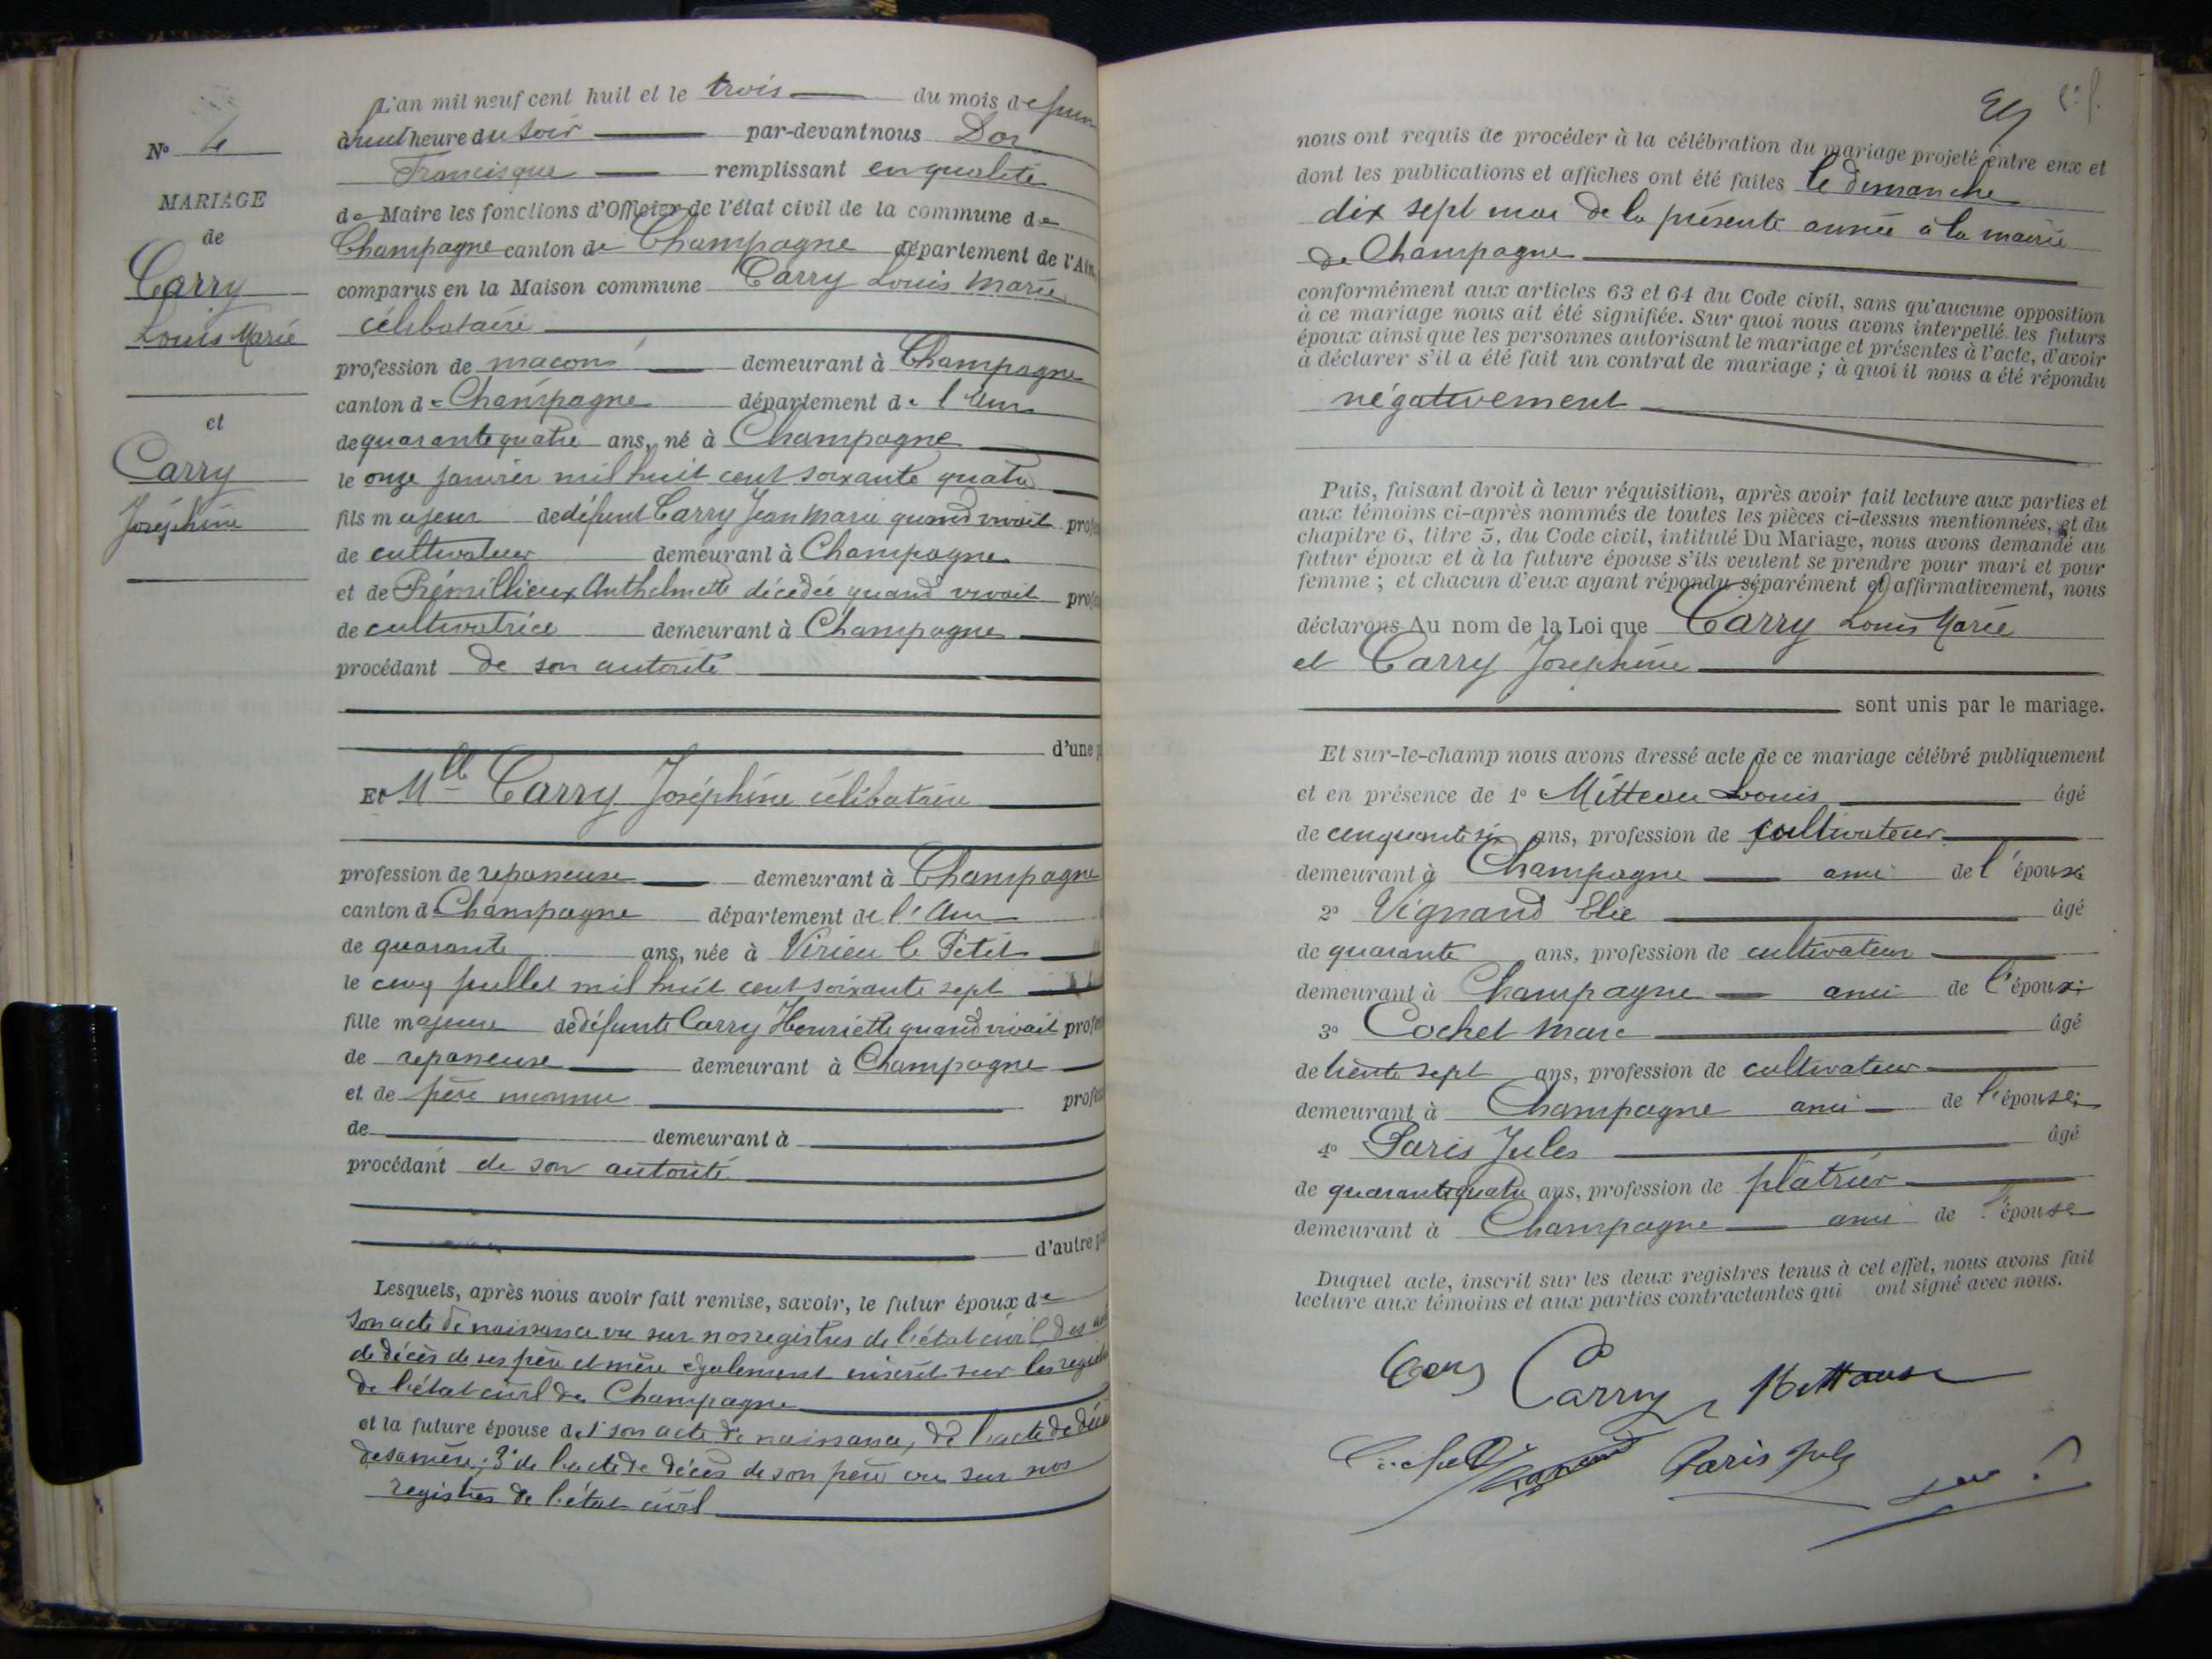 L'an mil neuf cent huit et le trois du mois de juin
à huit heure du soir par-devant nous Dor
Francisque remplissant en qualité
de Maire les fonctions d'Officier de l'état civil de la commune de
Champagne canton de Champagne département de l'Ain,
comparus en la Maison commune Carry Louis Marie
célibataire
profession de maçon demeurant à Champagne
canton de Champagne département de l'Ain
de quarante quatre ans, né à Champagne
le onze janvier mil huit cent soixante quatre
fils majeur de défunt Carry Jean Marie quand vivait profes
de cultivateur demeurant à Champagne
et de Prémillieux Anthelmette décédée quand vivait profes
de cultivatrice demeurant à Champagne
procédant de son autorité
d'une p
Et Mlle Carry Joséphine célibataire
profession de repasseuse demeurant à Champagne
canton de Champagne département de l'Ain
de quarante ans, née à Virieu le Petit
le cinq juillet mil huit cent soixante sept
fille majeure de défunte Carry Henriette quand vivait profes
de repasseuse demeurant à Champagne
et de père inconnu profes
de demeurant à
procédant de son autorité
d'autre pa
Lesquels, après nous avoir fait remise, savoir, le futur époux de
son acte de naissance vu sur nos registres de l'état civil Des
de décès de ses père et mère également inscrit sur les
de l'état civil de Champagne
et la future épouse de 1° son acte de naissance, De l'acte de décès
de sa mère; 3° de l'acte de décès de son père vu sur nos
registres de l'état civil
N° 4
MARIAGE
de
Carry
Louis Marie
et
Carry
Joséphine
nous ont requis de procéder à la célébration du mariage projeté entre eux et
dont les publications et affiches ont été faites le dimanche
dix sept mai de la présente année à la mairie
de Champagne
conformément aux articles 63 et 64 du Code civil, sans qu'aucune opposition
à ce mariage nous ait été signifiée. Sur quoi nous avons interpellé les futurs
époux ainsi que les personnes autorisant le mariage et présentes à l'acte, d'avoir
à déclarer s'il a été fait un contrat de mariage ; à quoi il nous a été répondu
négativement
Puis, faisant droit à leur réquisition, après avoir fait lecture aux parties et
aux témoins ci-après nommés de toutes les pièces ci-dessus mentionnées, et du
chapitre 6, titre 5, du Code civil, intitulé Du Mariage, nous avons demandé au
futur époux et à la future épouse s'ils veulent se prendre pour mari et pour
femme ; et chacun d'eux ayant répondu séparément et affirmativement, nous
déclarons Au nom de la Loi que Carry Louis Marie
et Carry Joséphine
sont unis par le mariage.
Et sur-le-champ nous avons dressé acte de ce mariage célébré publiquement
et en présence de 1° Mitteau Louis âgé
de cinquante six ans, profession de cultivateur
demeurant à Champagne ami de l'épouse
2° Vignand Elie âgé
de quarante ans, profession de cultivateur
demeurant à Champagne ami de l'époux;
3° Cochet Marc âgé
de trente sept ans, profession de cultivateur
demeurant à Champagne ami de l'épouse;
4° Paris Jules âgé
de quarante quatre ans, profession de plâtrier
demeurant à Champagne ami de l'épouse
Duquel acte, inscrit sur les deux registres tenus à cet effet, nous avons fait
lecture aux témoins et aux parties contractantes qui ont signé avec nous.
Carry
Paris Jules